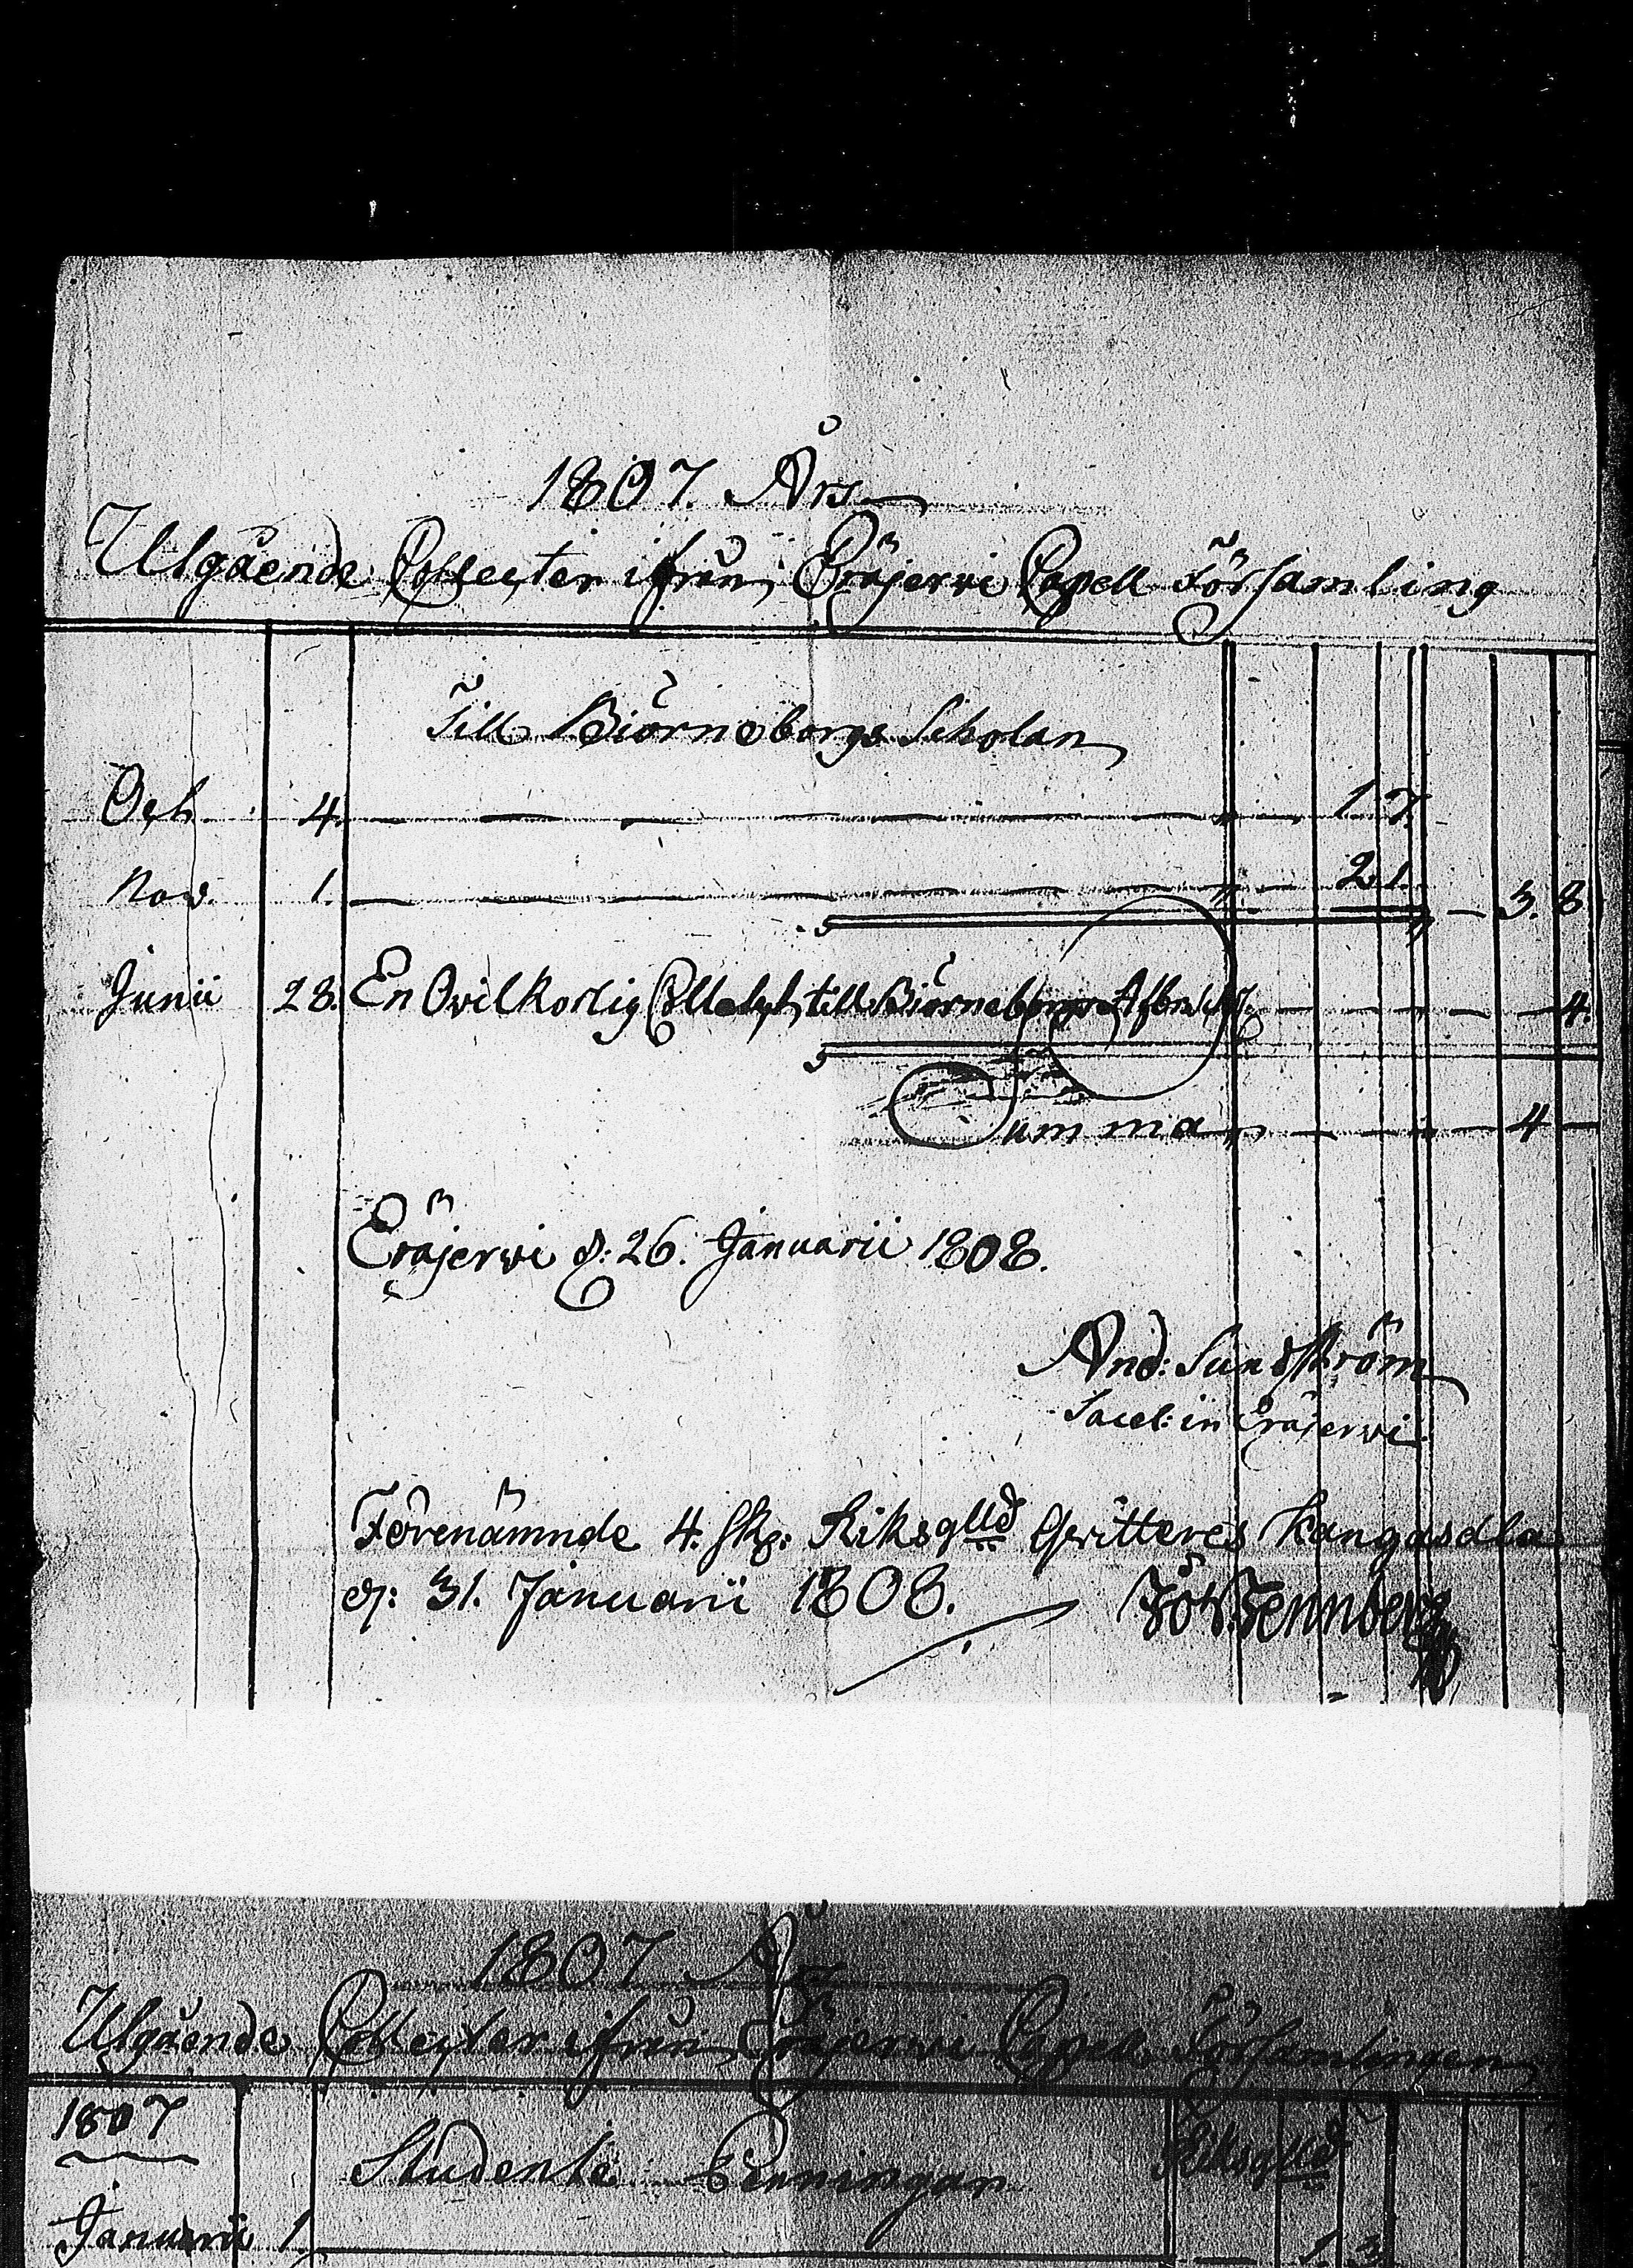 1807. Års
Utgående Collecter ifrån Eräjerwi Capell Församling
Till Biörneborgs Scholan
Oct. 4. — — — — — — — " — 1. 7.
Nov. 1. — — — — — — — " — 2. 1. — 3. 8
Junii 28. En Ovilkorlig Collect till Biörneborgs — — — — — 4.
Summa — — — — 4 —
Eräjerwi d: 26. Januarii 1808.
And: Sundström
Sacel: in Eräjerwi
Förenämnde 4. skg: Riksglld Qvitteres Kangasala
d: 31. Januarii 1808.
1807 Års
Utgående Collecter ifrån Eräjerwi Capell Församlingen
1807
Studente Penningar Riksglld
Januarii 1. — 1. 3.